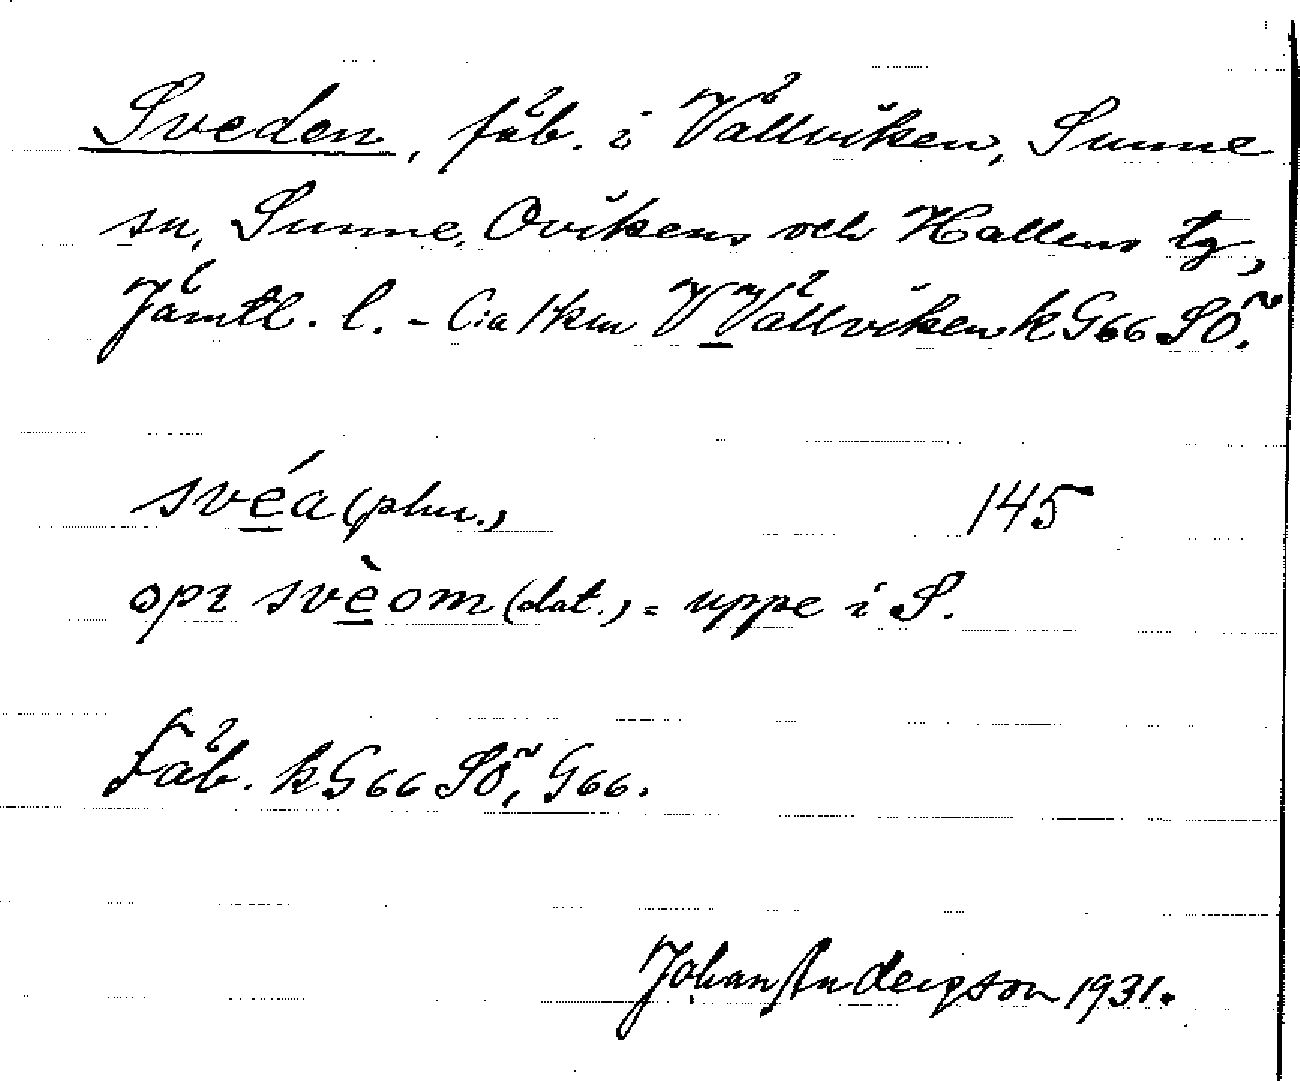 Sveden, fäb. i Vällviken, Sunne
sn, Sunne, Ovikens och Hallens tg,
Jämtl. l. - C:a 1 km V Vällviken k G66 SÖ.
svéa (plur.) 145
opr svèom (dat.) = uppe i S.
Fäb. k G66 SÖ, G66.
Johan Andersson 1931.